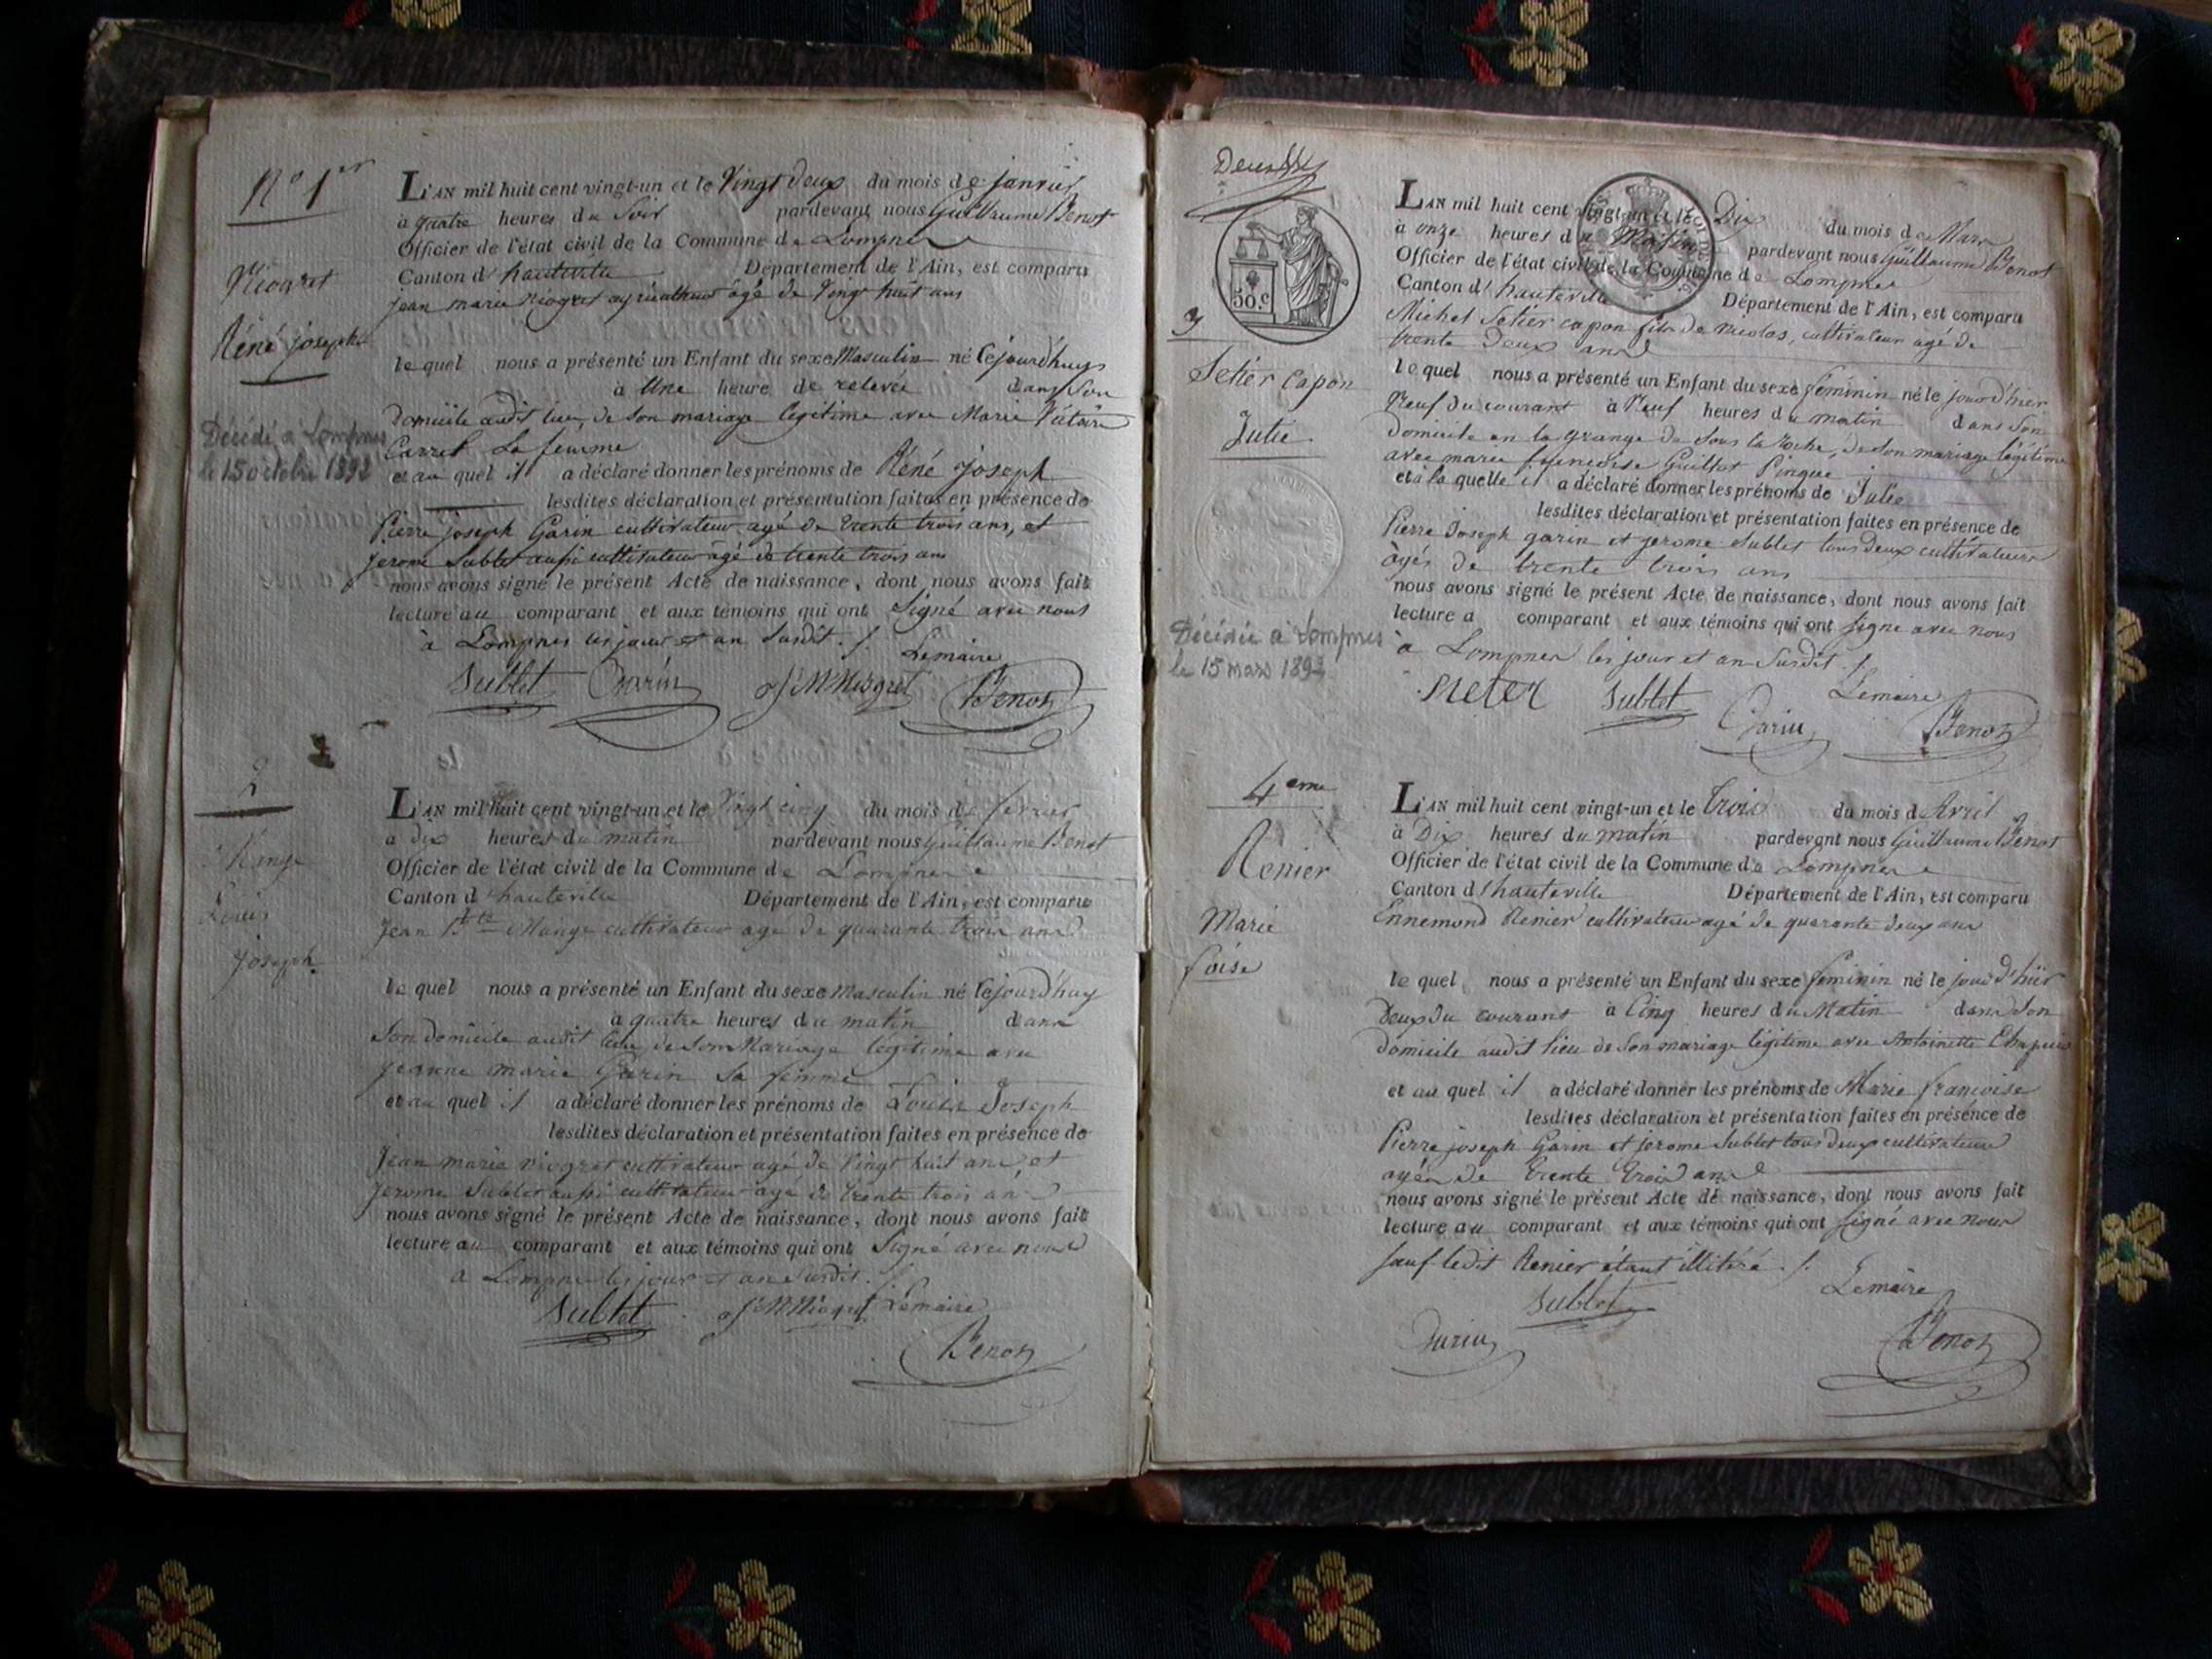 N° 1er
Niogret
Réné joseph
Décédé à Lompnes
le 15 octobre 1892
L'AN mil huit cent vingt-un et le Vingt deux du mois de janvier
à quatre heures du Soir pardevant nous Guillaume Benot
Officier de l'état civil de la Commune de Lompnes
Canton d'hauteville Département de l'Ain, est comparu
Jean marie Niogret agriculteur âgé de Vingt huit ans
le quel nous a présenté un Enfant du sexe Masculin né Cejourd'huy
à Une heure de relevée dans Son
domicile audit lieu, de son mariage légitime avec Marie
Carret Sa femme
et au quel il a déclaré donner les prénoms de Réné joseph
lesdites déclaration et présentation faites en présence de
Pierre joseph Garin cultivateur agé de trente trois ans, et
Jerome Sublet aussi cultivateur âgé de trente trois ans
nous avons signé le présent Acte de naissance, dont nous avons fait
lecture au comparant et aux témoins qui ont Signé avec nous
à Lompnes les jour et an Susdit ./.
Lemaire
Sublet Garin J M Niogret Benot
2
Mange
Louis
Joseph
L'AN mil huit cent vingt-un et le Vingt cinq du mois de fevrier
à Dix heures du matin pardevant nous Guillaume Benot
Officier de l'état civil de la Commune de Lompnes
Canton d'hauteville Département de l'Ain, est comparu
Jean Bte Mange cultivateur agé de quarante trois ans
le quel nous a présenté un Enfant du sexe masculin né Cejourd'huy
à quatre heures du matin dans
Son domicile audit lieu, de Son Mariage légitime avec
jeanne marie Garin Sa femme
et au quel il a déclaré donner les prénoms de Louis Joseph
lesdites déclaration et présentation faites en présence de
Jean marie niogret cultivateur agé de Vingt huit ans, et
Jerome Sublet aussi cultivateur agé de trente trois ans
nous avons signé le présent Acte de naissance, dont nous avons fait
lecture au comparant et aux témoins qui ont Signé avec nous
à Lompnes les jour et an Susdit ./.
Sublet J M Niogret Lemaire
Benot
Deux
50 c
3
Setier Capon
Julie
Décédée à Lompnes
le 15 mars 1893
L'AN mil huit cent vingt-un et le Dix du mois de Mars
à onze heures du Matin pardevant nous Guillaume Benot
Officier de l'état civil de la Commune de Lompnes
Canton d'hauteville Département de l'Ain, est comparu
Michel Setier capon fils de nicolas, cultivateur agé de
trente Deux ans
le quel nous a présenté un Enfant du sexe féminin né le jour d'hier
Neuf du courant à Neuf heures du matin dans Son
domicile en la grange de Sous la Roche, de Son mariage légitime
avec marie françoise Guillot Pingue
et à la quelle il a déclaré donner les prénoms de Julie
lesdites déclaration et présentation faites en présence de
Pierre Joseph garin et jerome Sublet tous deux cultivateurs
âgés de trente trois ans
nous avons signé le présent Acte de naissance, dont nous avons fait
lecture a comparant et aux témoins qui ont Signé avec nous
à Lompnes les jour et an Susdit ./.
Sublet Lemaire
Garin Benot
4eme
Renier
Marie
foise
L'AN mil huit cent vingt-un et le trois du mois d'Avril
à Dix heures du matin pardevant nous Guillaume Benot
Officier de l'état civil de la Commune de Lompnes
Canton d'hauteville Département de l'Ain, est comparu
Ennemond Renier cultivateur agé de quarante deux ans
le quel nous a présenté un Enfant du sexe féminin né le jour d'hier
Deux du courant à Cinq heures du Matin dans Son
domicile audit lieu de Son mariage légitime avec Antoinette Chapuis
et au quel il a déclaré donner les prénoms de Marie françoise
lesdites déclaration et présentation faites en présence de
Pierre joseph Garin et jerome Sublet tous deux cultivateurs
agés de trente trois ans
nous avons signé le présent Acte de naissance, dont nous avons fait
lecture au comparant et aux témoins qui ont Signé avec nous
Sauf ledit Renier étant illitéré ./.
Sublet Lemaire
Garin Benot